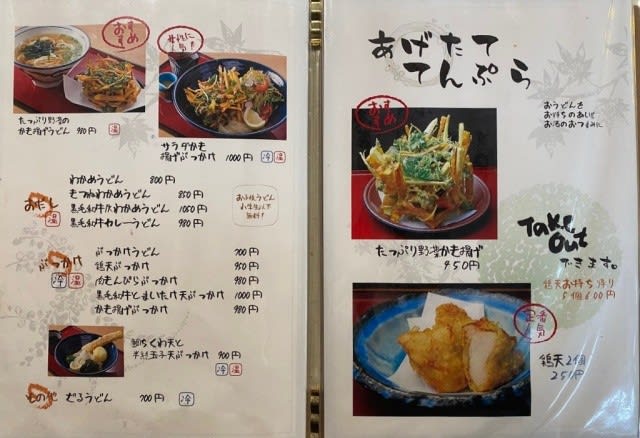 おすすめ
女性に人気
たっぷり野菜の
かき揚げうどん 980円 温
サラダかき
揚げぶっかけ 1000円 冷 温
おだし
温
わかめうどん 800円
もつねわかめうどん 850円
黒毛和牛肉わかめうどん 1050円
黒毛和牛カレーうどん 980円
お子様うどん
小学生以下
無料!
ぶっかけ
冷 温
ぶっかけうどん 700円
鶏天ぶっかけ 950円
肉きんぴらぶっかけ 980円
黒毛和牛としいたけ天ぶっかけ 1000円
かき揚げぶっかけ 980円
ちくわ天と
半熟玉子天ぶっかけ 900円
冷 温
ざるうどん 700円 冷
あげたて
てんぷら
おすすめ
おうどんを
お待ちのあいだ
お酒のおつまみに
たっぷり野菜かき揚げ
450円
Take
Out
できます。
鶏天お持ち帰り
5個600円
定番
人気
鶏天2個
250円